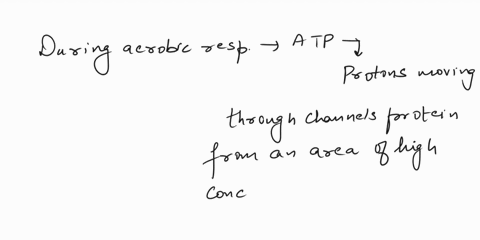 During aerobic resp. → ATP →
Protons moving
through channels protein
from an area of high
conc